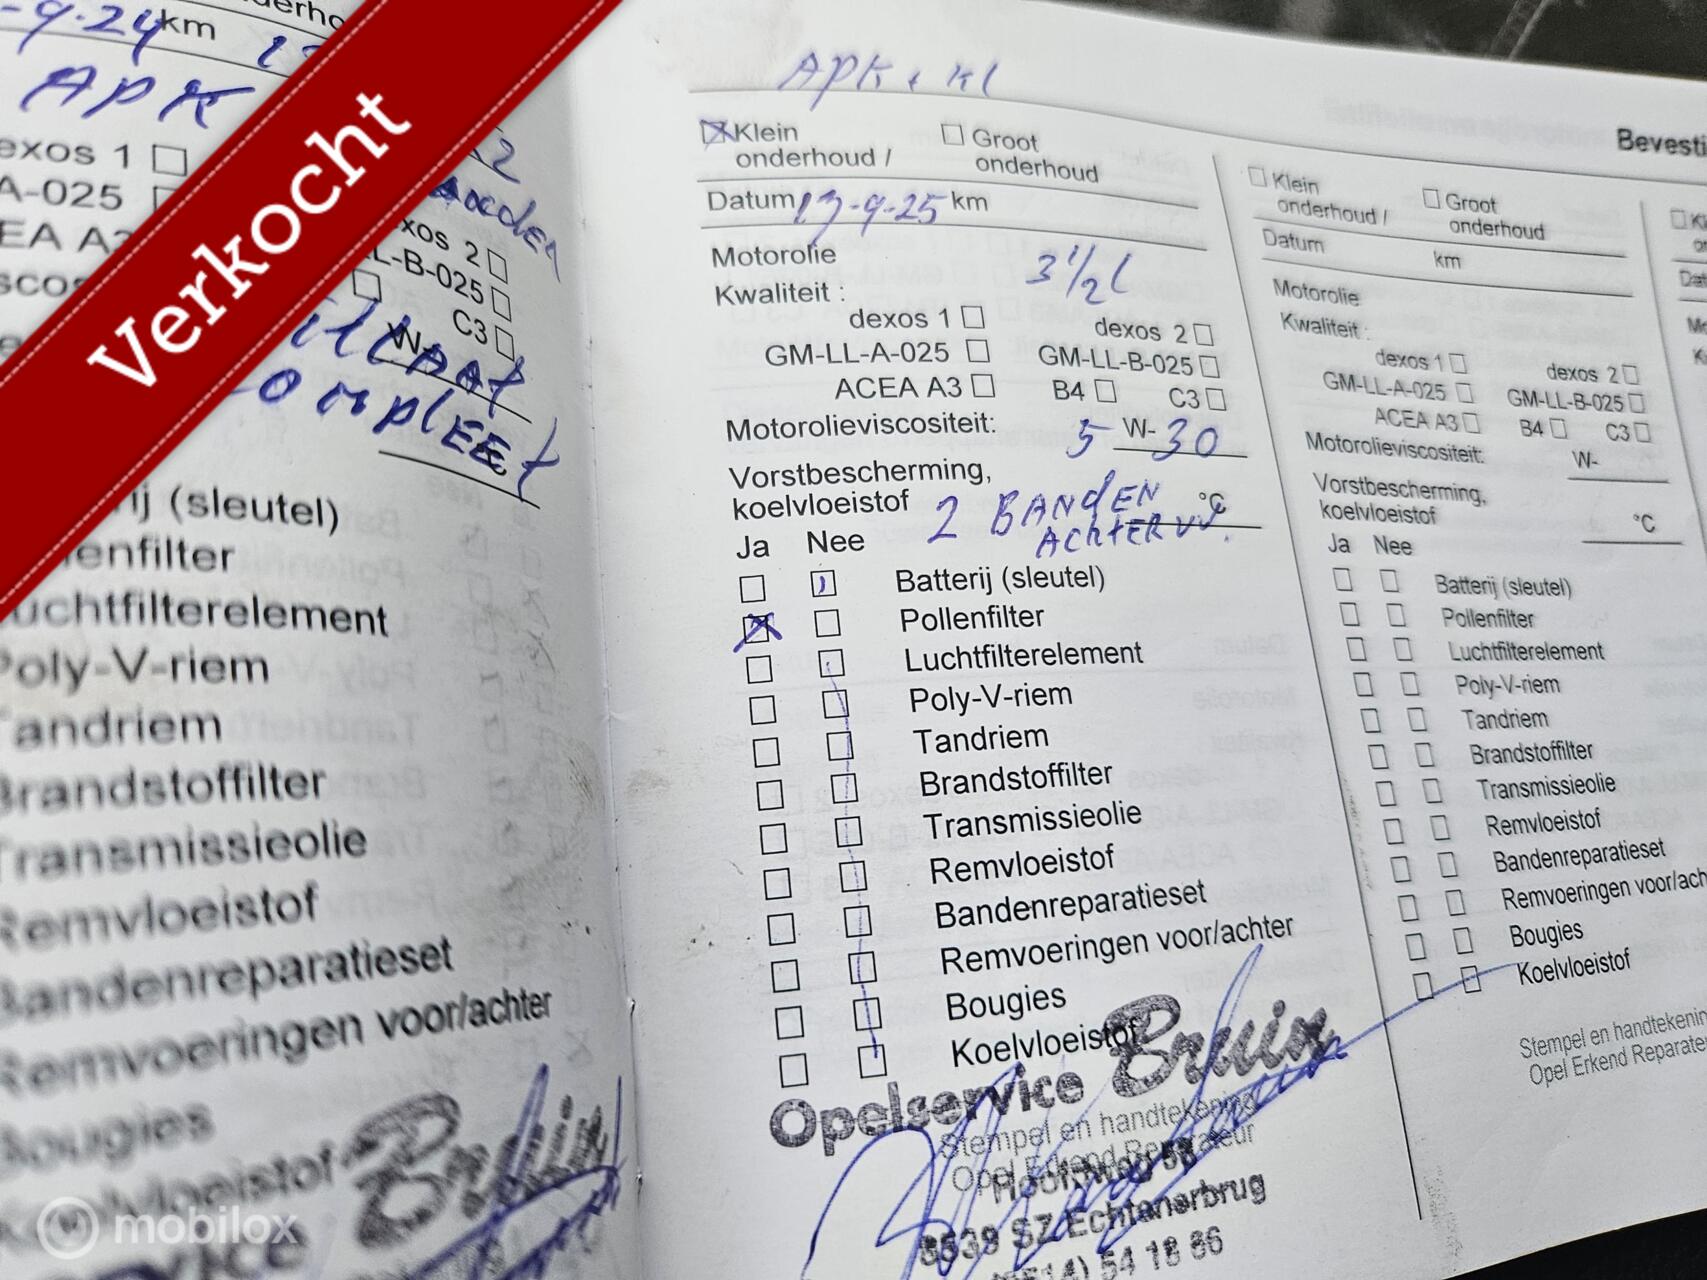 Verkocht
9-24 km
APK
exos 1
A-025
EA A3
exos 2
L-B-025
C3
W-
UitlAAt
complEEt
ij (sleutel)
enfilter
uchtfilterelement
Poly-V-riem
Tandriem
Brandstoffilter
Transmissieolie
Remvloeistof
Bandenreparatieset
Remvoeringen voor/achter
Bougies
Koelvloeistof
Bruin
mobilox
APK + Kl
Klein onderhoud /
Groot onderhoud
Datum 17-9-25 km
Motorolie 3 1/2 l
Kwaliteit :
dexos 1 dexos 2
GM-LL-A-025 GM-LL-B-025
ACEA A3 B4 C3
Motorolieviscositeit: 5 W-30
Vorstbescherming,
koelvloeistof °C
2 BANdEN
AchtER
Ja Nee
Batterij (sleutel)
Pollenfilter
Luchtfilterelement
Poly-V-riem
Tandriem
Brandstoffilter
Transmissieolie
Remvloeistof
Bandenreparatieset
Remvoeringen voor/achter
Bougies
Koelvloeistof
Opelservice Bruin
Stempel en handtekening
Opel Erkend Reparateur
8539 SZ Echtenerbrug
54 18 86
Bevesti
Klein onderhoud /
Groot onderhoud
Datum km
Motorolie
Kwaliteit :
dexos 1 dexos 2
GM-LL-A-025 GM-LL-B-025
ACEA A3 B4 C3
Motorolieviscositeit: W-
Vorstbescherming,
koelvloeistof °C
Ja Nee
Batterij (sleutel)
Pollenfilter
Luchtfilterelement
Poly-V-riem
Tandriem
Brandstoffilter
Transmissieolie
Remvloeistof
Bandenreparatieset
Remvoeringen voor/ach
Bougies
Koelvloeistof
Stempel en handtekenin
Opel Erkend Reparate